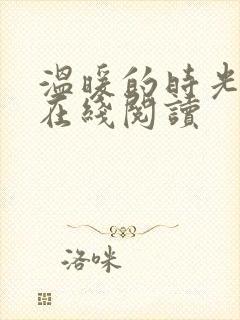 温暖的時光
在綫閱讀
洛咪